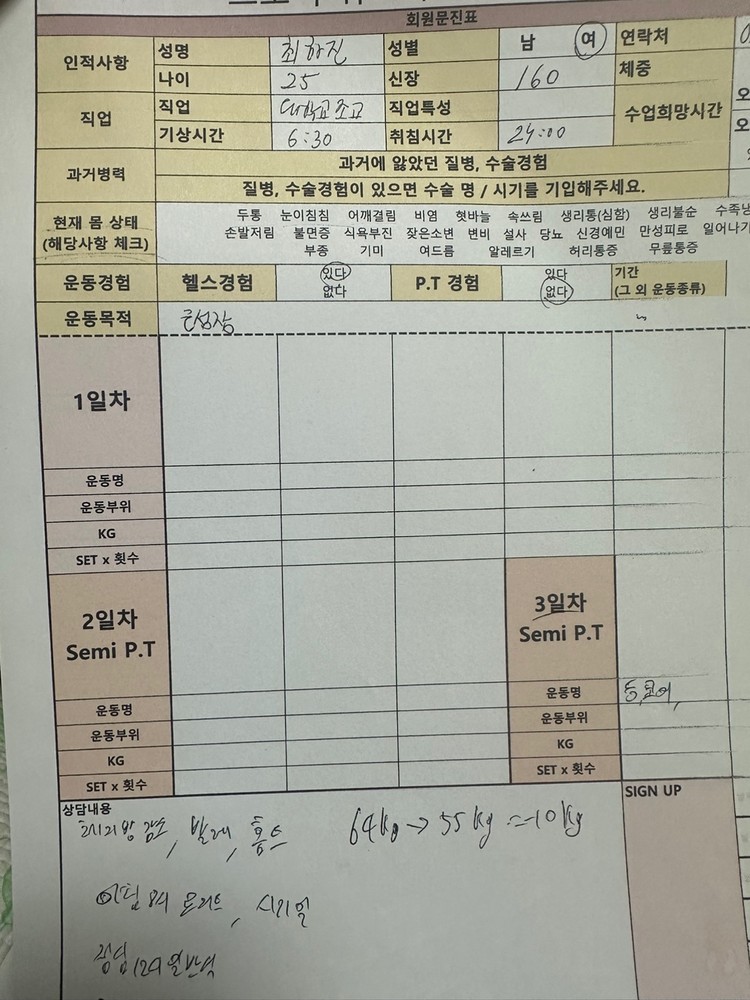 회원문진표
인적사항 성명 최하진 성별 남 여 연락처
나이 25 신장 160 체중
직업 직업 대학교 조교 직업특성 수업희망시간 오
기상시간 6:30 취침시간 24:00 오
과거병력 과거에 앓았던 질병, 수술경험
질병, 수술경험이 있으면 수술 명 / 시기를 기입해주세요.
현재 몸 상태 두통 눈이침침 어깨결림 비염 혓바늘 속쓰림 생리통(심함) 생리불순 수족냉
(해당사항 체크) 손발저림 불면증 식욕부진 잦은소변 변비 설사 당뇨 신경예민 만성피로 일어나기
부종 기미 여드름 알레르기 허리통증 무릎통증
운동경험 헬스경험 있다 P.T 경험 있다 기간
없다 없다 (그 외 운동종류)
운동목적 근성장
1일차
운동명
운동부위
KG
SET x 횟수
2일차 3일차
Semi P.T Semi P.T
운동명 운동명
운동부위 운동부위
KG KG
SET x 횟수 SET x 횟수
상담내용 SIGN UP
체지방 감소, 발레, 홈트 64kg → 55kg -10kg
아침 8시 요거트, 시리얼
점심 12시 일반식